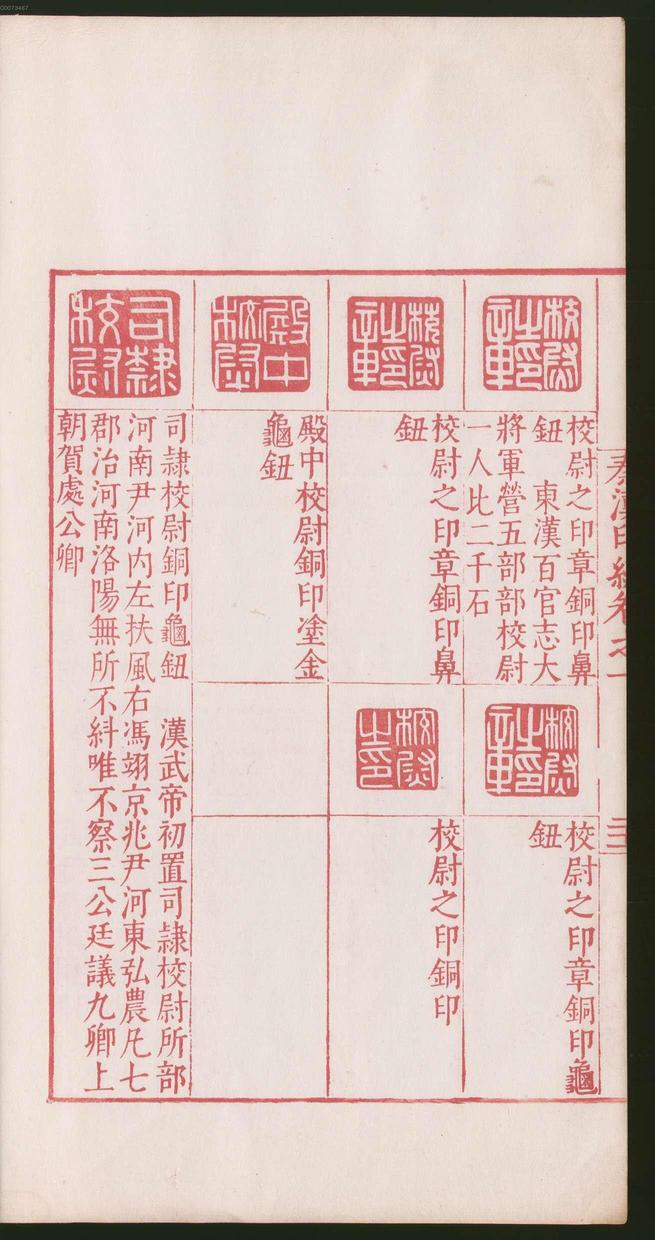 00073467
秦漢印統卷之一
校尉
之印
章
校尉之印章銅印鼻
鈕　東漢百官志大
將軍營五部部校尉
一人比二千石
校尉
之印
章
校尉之印章銅印龜
鈕
校尉
之印
章
校尉之印章銅印鼻
鈕
校尉
之印
校尉之印銅印
殿中
校尉
殿中校尉銅印塗金
龜鈕
司隸
校尉
司隷校尉銅印龜鈕　漢武帝初置司隷校尉所部
河南尹河内左扶風右馮翊京兆尹河東弘農凡七
郡治河南洛陽無所不糾唯不察三公廷議九卿上
朝賀處公卿